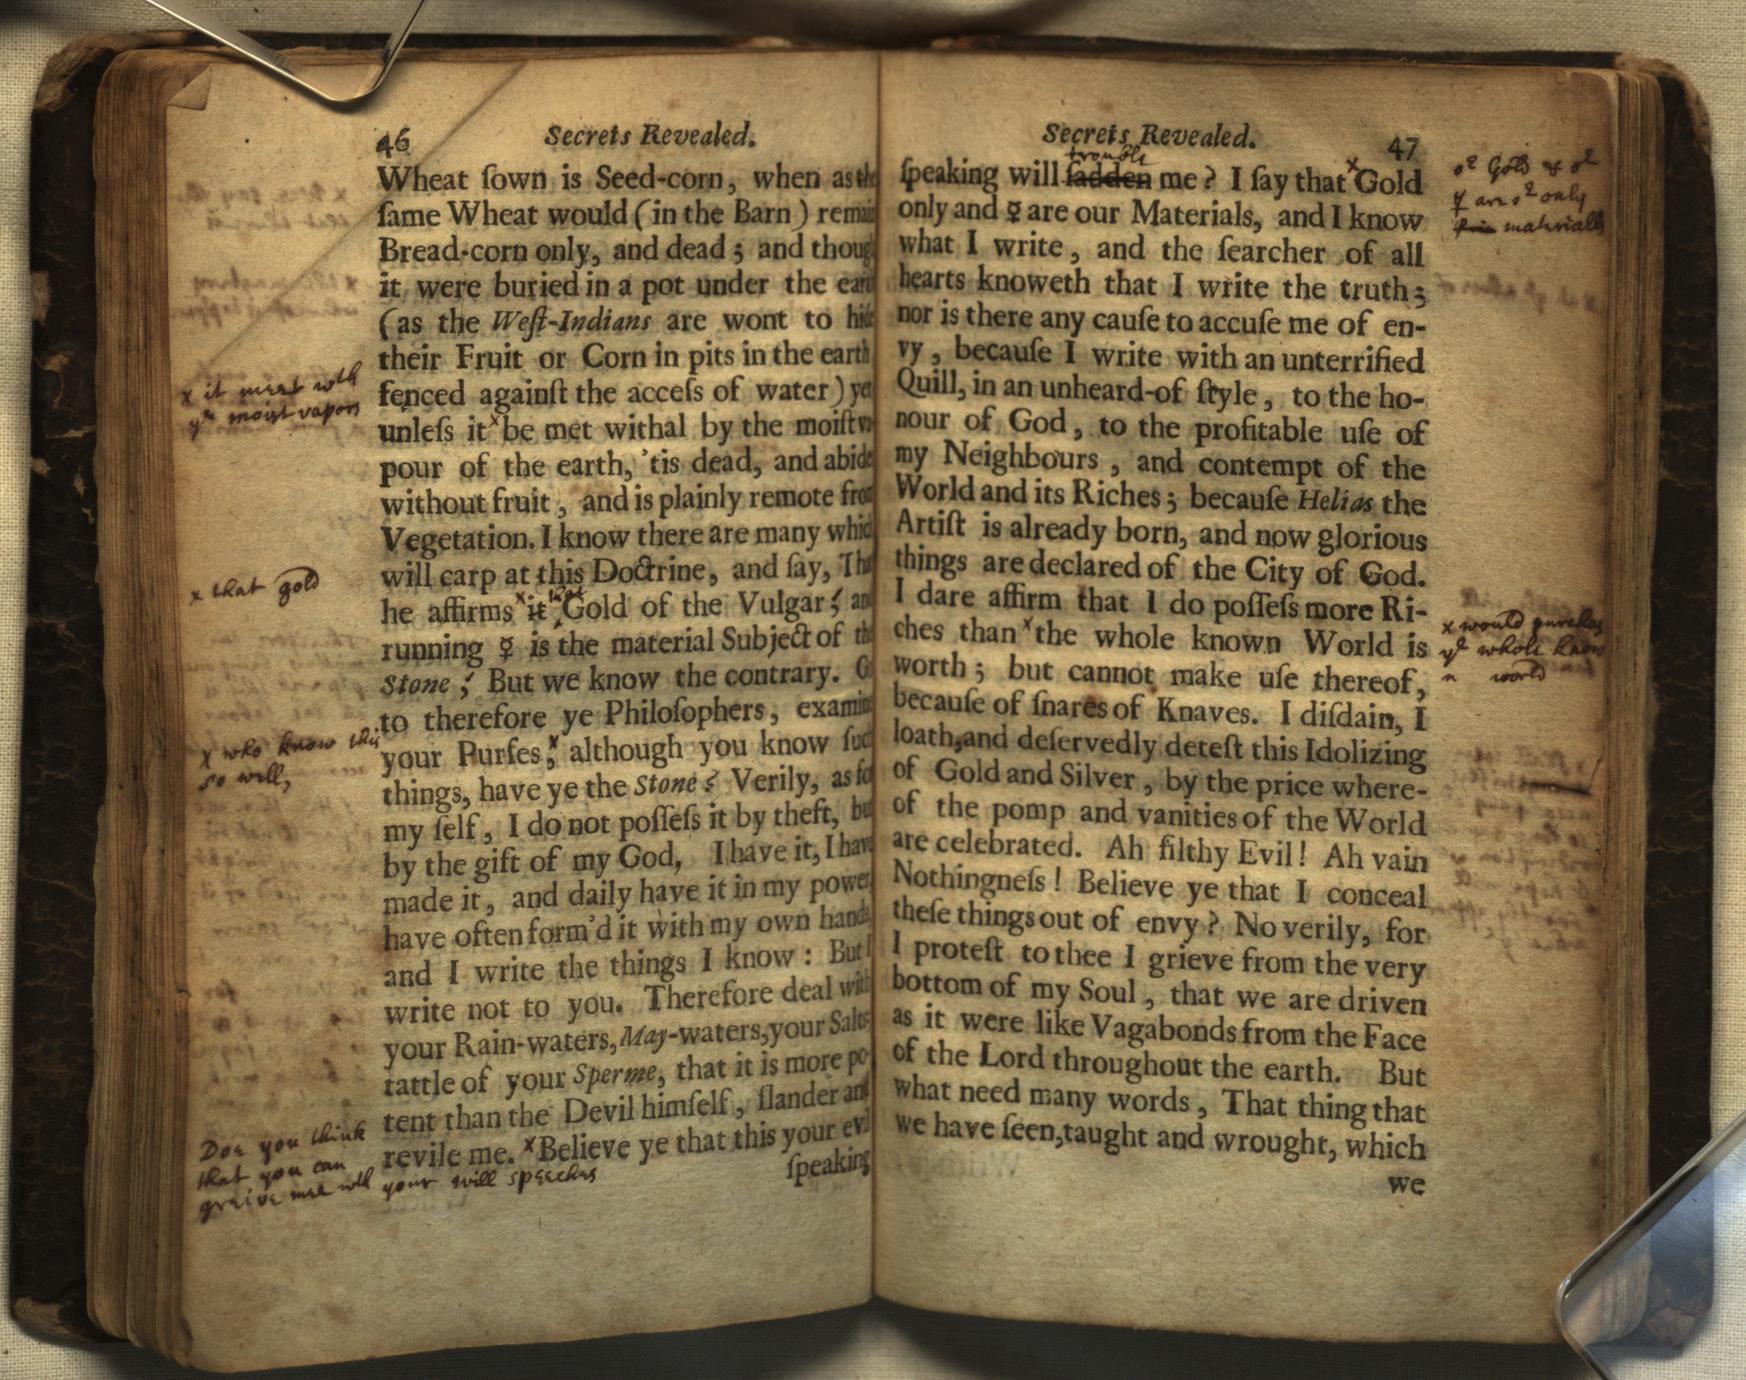 46 Secrets Revealed.
Wheat ſown is Seed-corn, when as the
ſame Wheat would (in the Barn) remain
Bread-corn only, and dead; and thoug
it were buried in a pot under the eart
(as the Weſt-Indians are wont to hide
their Fruit or Corn in pits in the earth
x it meet with
fenced againſt the acceſs of water) yet
ye moist vapor
unleſs it x be met withal by the moiſt va
pour of the earth, 'tis dead, and abide
without fruit, and is plainly remote from
Vegetation. I know there are many whic
will carp at this Doctrine, and ſay, Tha
x that gold
he affirms x it that Gold of the Vulgar; and
running ☿ is the material Subject of the
Stone; But we know the contrary. Go
to therefore ye Philoſophers, examin
x who know this
your Purſes; x although you know ſuc
so well,
things, have ye the Stone? Verily, as fo
my ſelf, I do not poſſeſs it by theft, but
by the gift of my God, I have it, I have
made it, and daily have it in my power
have often form'd it with my own hands
and I write the things I know: But I
write not to you. Therefore deal with
your Rain-waters, May-waters, your Salts
rattle of your Sperme, that it is more po-
tent than the Devil himſelf, ſlander and
Doe you think
revile me. x Believe ye that this your evil
that you can
greive mee with your will speeches
ſpeaking
Secrets Revealed. 47
trouble
ſpeaking will ſadden me? I ſay that x Gold
or Gold & or
only and ☿ are our Materials, and I know
☿ are or only
materialls
what I write, and the ſearcher of all
hearts knoweth that I write the truth;
nor is there any cauſe to accuſe me of en-
vy, becauſe I write with an unterrified
Quill, in an unheard-of ſtyle, to the ho-
nour of God, to the profitable uſe of
my Neighbours, and contempt of the
World and its Riches; becauſe Helias the
Artiſt is already born, and now glorious
things are declared of the City of God.
I dare affirm that I do poſſeſs more Ri-
x would purchas
ches than x the whole known World is
ye whole know
n world
worth; but cannot make uſe thereof,
becauſe of ſnares of Knaves. I diſdain, I
loath, and deſervedly deteſt this Idolizing
of Gold and Silver, by the price where-
of the pomp and vanities of the World
are celebrated. Ah filthy Evil! Ah vain
Nothingneſs! Believe ye that I conceal
theſe things out of envy? No verily, for
I proteſt to thee I grieve from the very
bottom of my Soul, that we are driven
as it were like Vagabonds from the Face
of the Lord throughout the earth. But
what need many words, That thing that
we have ſeen, taught and wrought, which
we